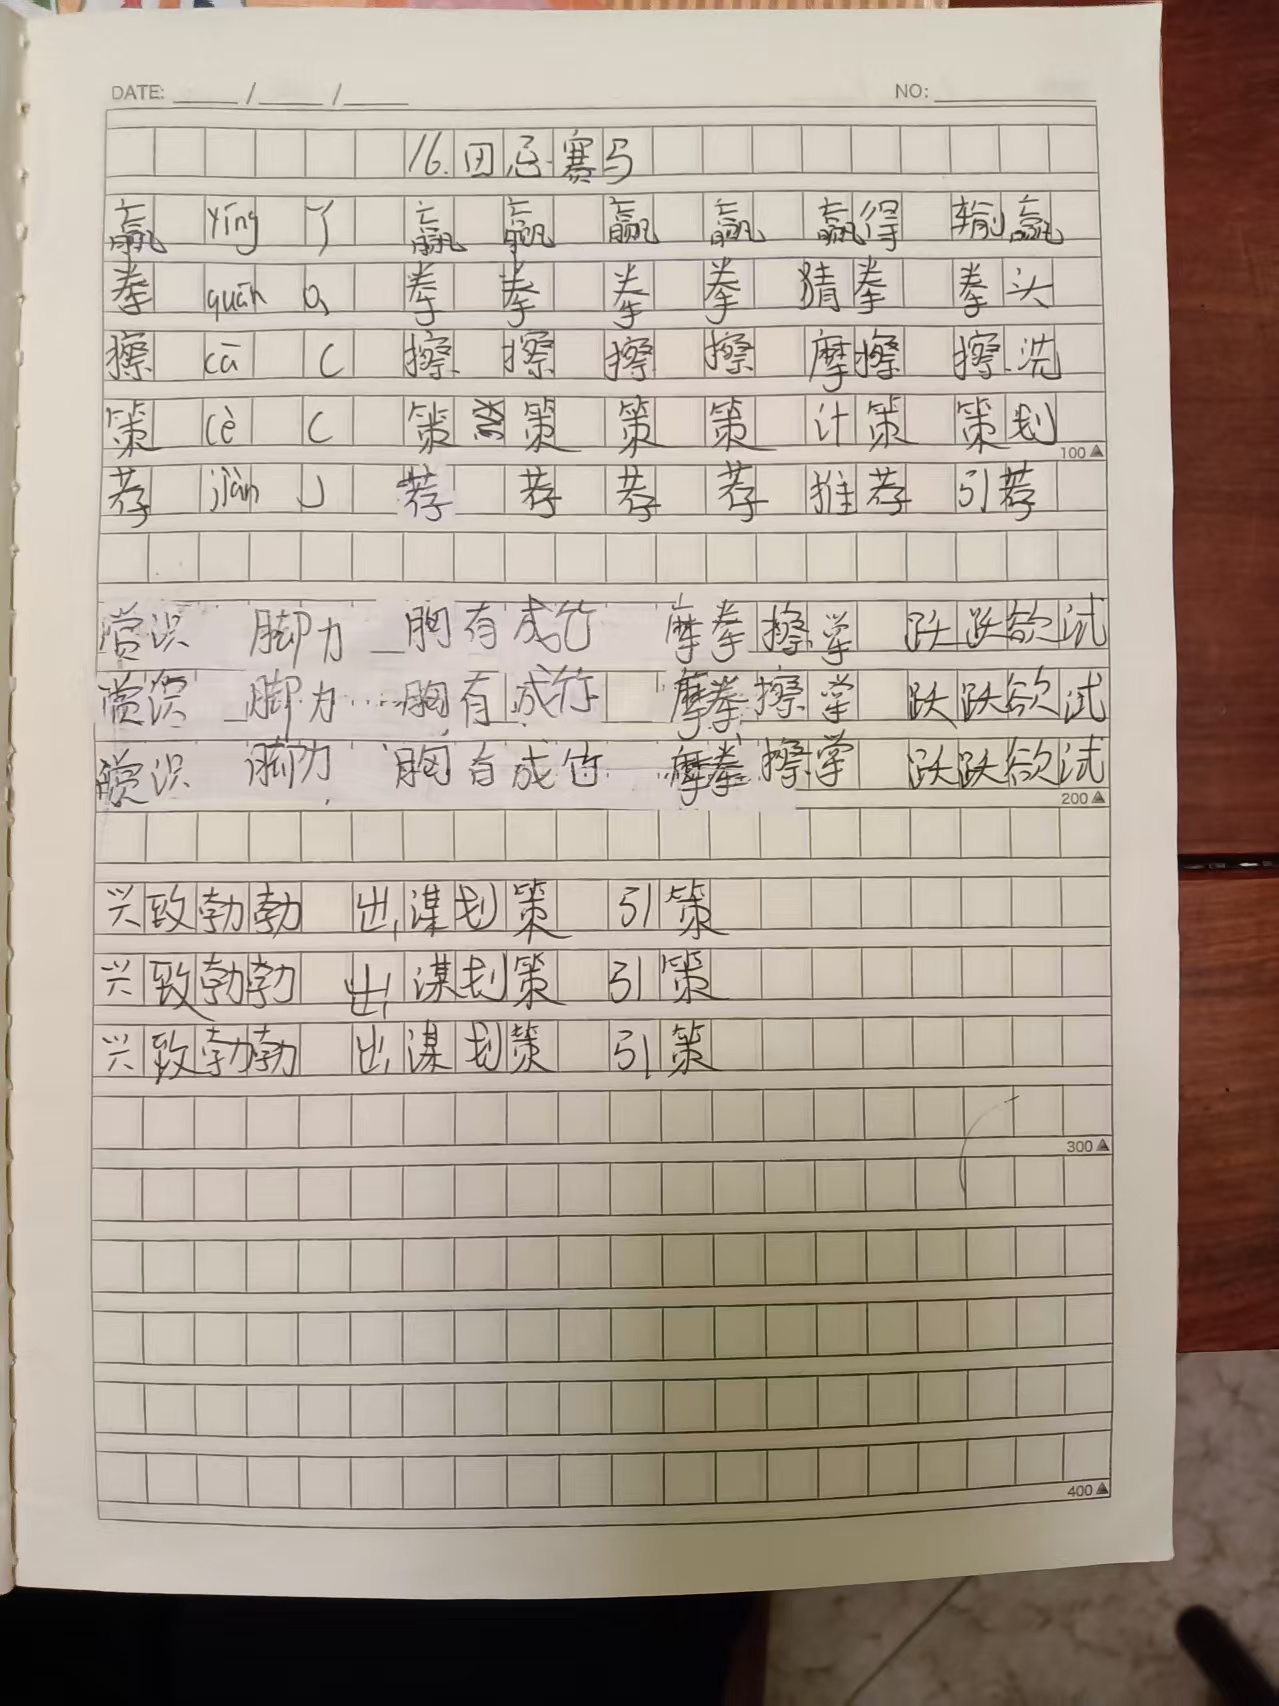 DATE: ____ / ____ / ____ NO: ________
16. 田忌赛马
赢 yíng 丫 赢 赢 赢 赢 赢得 输赢
拳 quán Q 拳 拳 拳 拳 猜拳 拳头
擦 cā C 擦 擦 擦 擦 摩擦 擦洗
策 cè C 策 策 策 策 计策 策划
100
荐 jiàn J 荐 荐 荐 荐 推荐 引荐
赏识 脚力 胸有成竹 摩拳擦掌 跃跃欲试
赏识 脚力 胸有成竹 摩拳擦掌 跃跃欲试
赏识 脚力 胸有成竹 摩拳擦掌 跃跃欲试
200
兴致勃勃 出谋划策 引策
兴致勃勃 出谋划策 引策
兴致勃勃 出谋划策 引策
300
400